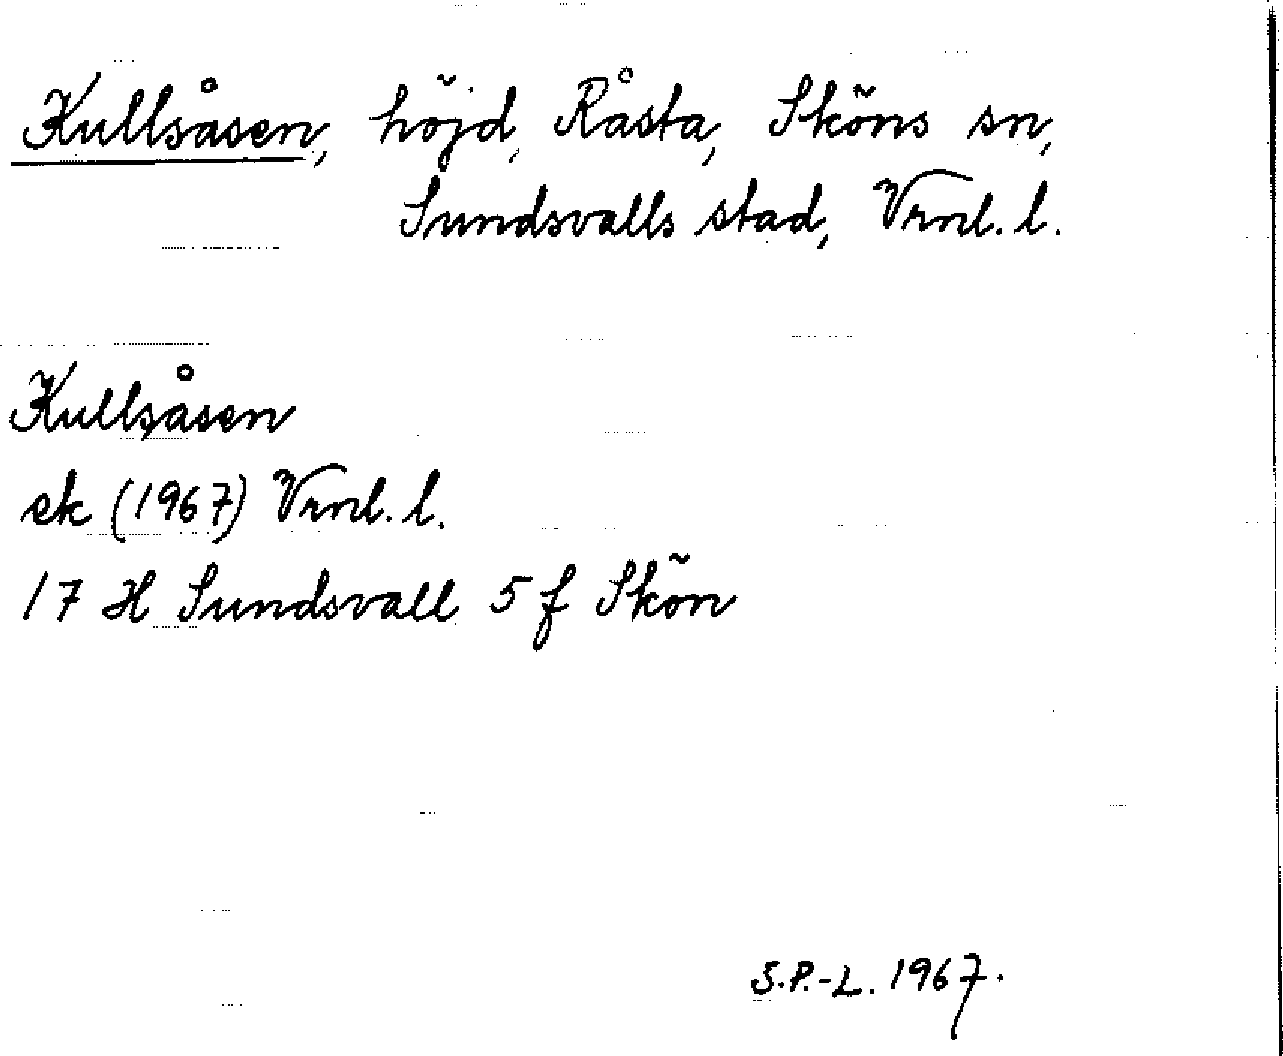 Kullsåsen, höjd, Råsta, Sköns sn,
Sundsvalls stad, Vrnl. l.
Kullsåsen
ek (1967) Vrnl. l.
17 H Sundsvall 5 f Skön
S.P.-L. 1967.